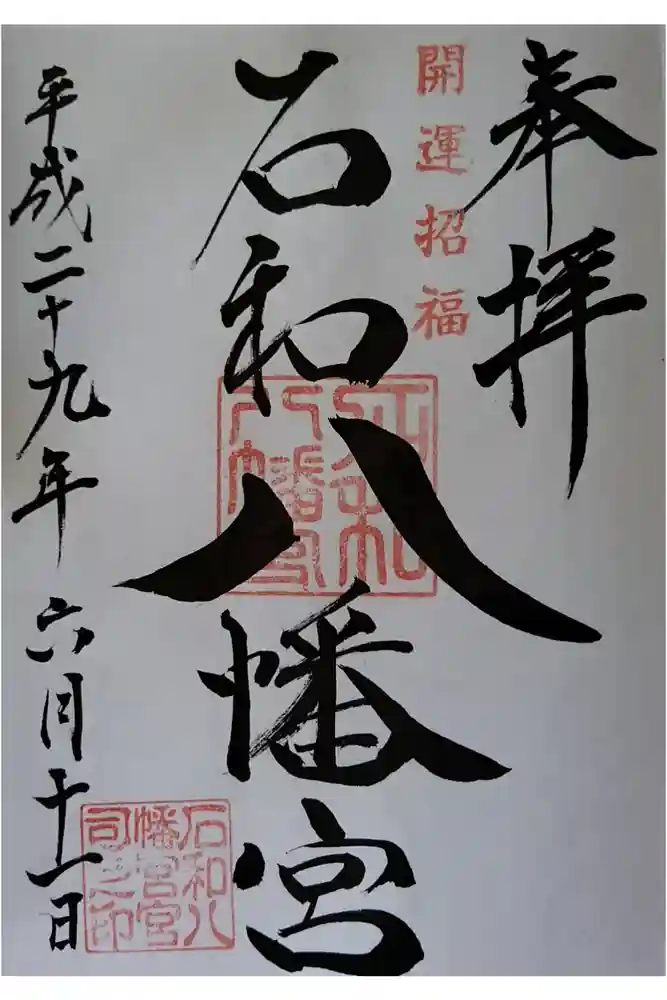 奉拝
開運招福
石和八幡宮
石和八幡宮
平成二十九年六月十一日
石和八
幡宮宮
司之印